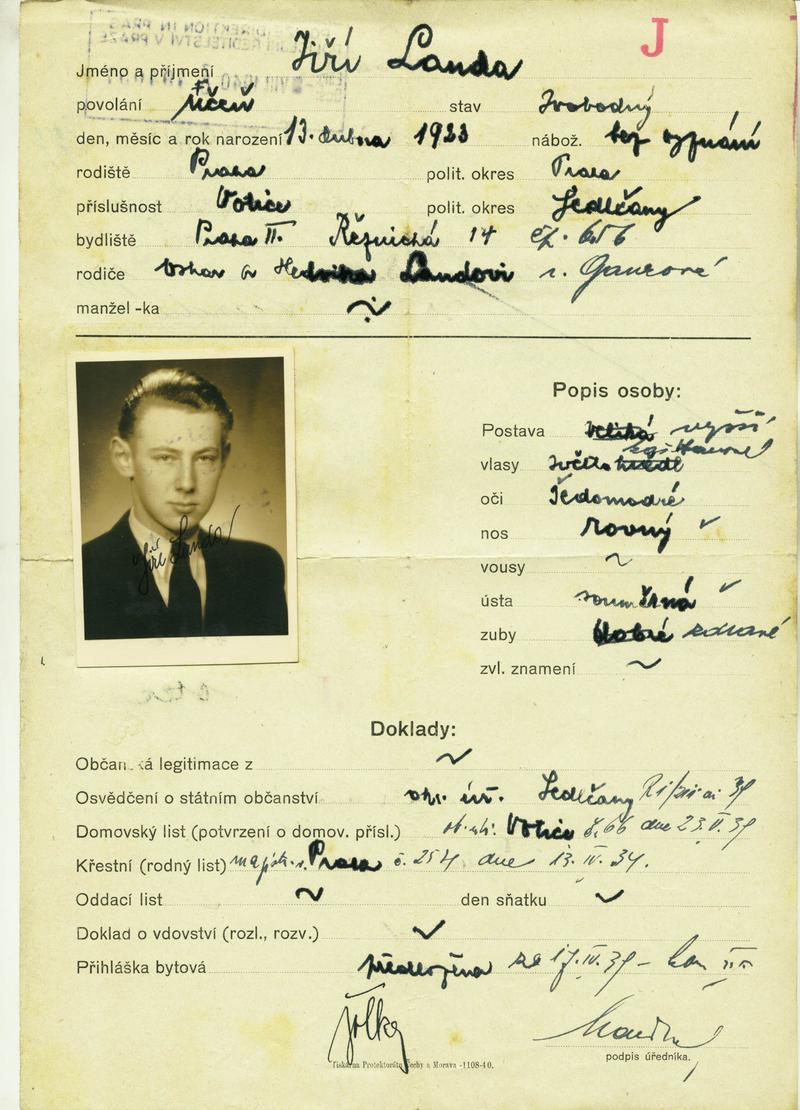 J
Jméno a příjmení Jiří Landa
povolání učeň stav svobodný
den, měsíc a rok narození 13. dubna 1923 nábož. bez vyznání
rodiště Praha polit. okres Praha
příslušnost Votice polit. okres Sedlčany
bydliště Praha II. Řeznická 14 čp. 656
rodiče Oskar a Hedvika Landovi r. Ganzová
manžel -ka ~
Popis osoby:
Postava veliká vyšší
vlasy světle hnědé
oči šedomodré
nos rovný
vousy ~
ústa souměrná
zuby dobré zdravé
zvl. znamení ~
Jiří Landa
Doklady:
Občanská legitimace z ~
Osvědčení o státním občanství okr. úř. Sedlčany 39
Domovský list (potvrzení o domov. přísl.) Votice č. 66 dne 23.V.39
Křestní (rodný list) Praha č. 254 dne 13.IV.34.
Oddací list ~ den sňatku
Doklad o vdovství (rozl., rozv.)
Přihláška bytová předložena ze 17.IV.39
podpis úředníka.
Tiskárna Protektorátu Čechy a Morava -1108-40.